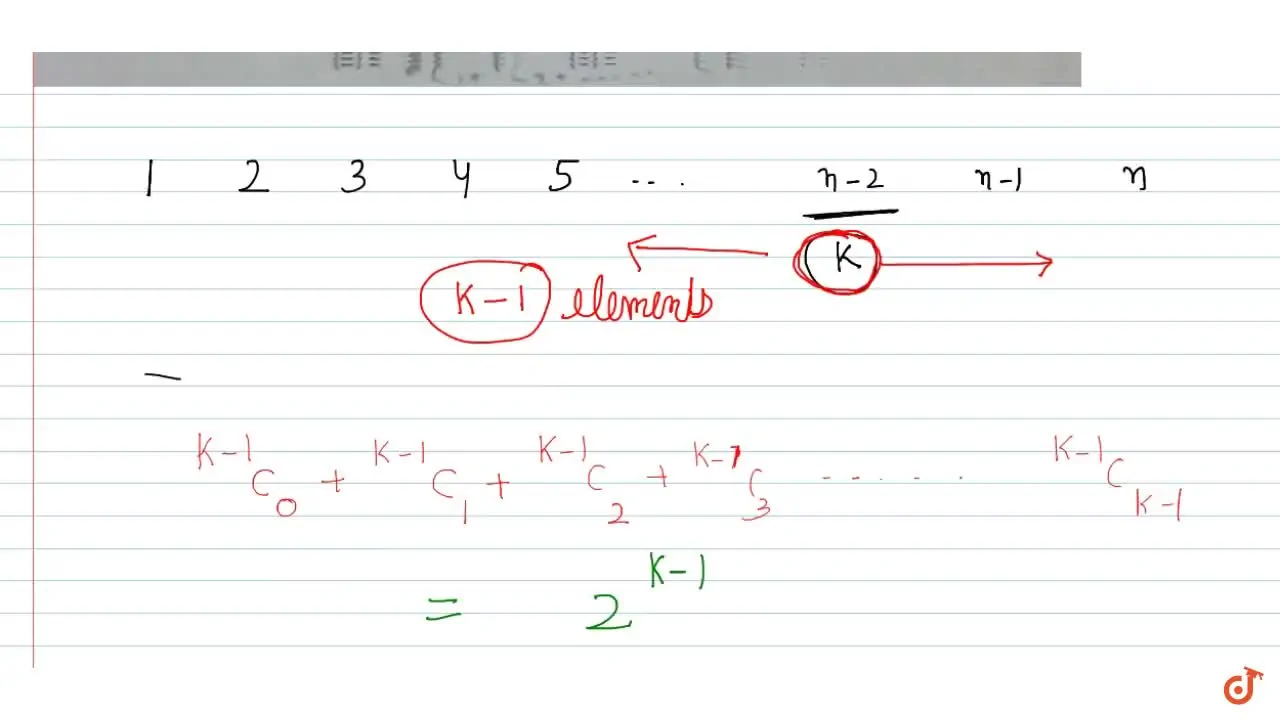 1 2 3 4 5 ... n-2 n-1 n
K
K-1 elements
K-1C0 + K-1C1 + K-1C2 + K-1C3 ........ K-1CK-1
= 2^K-1